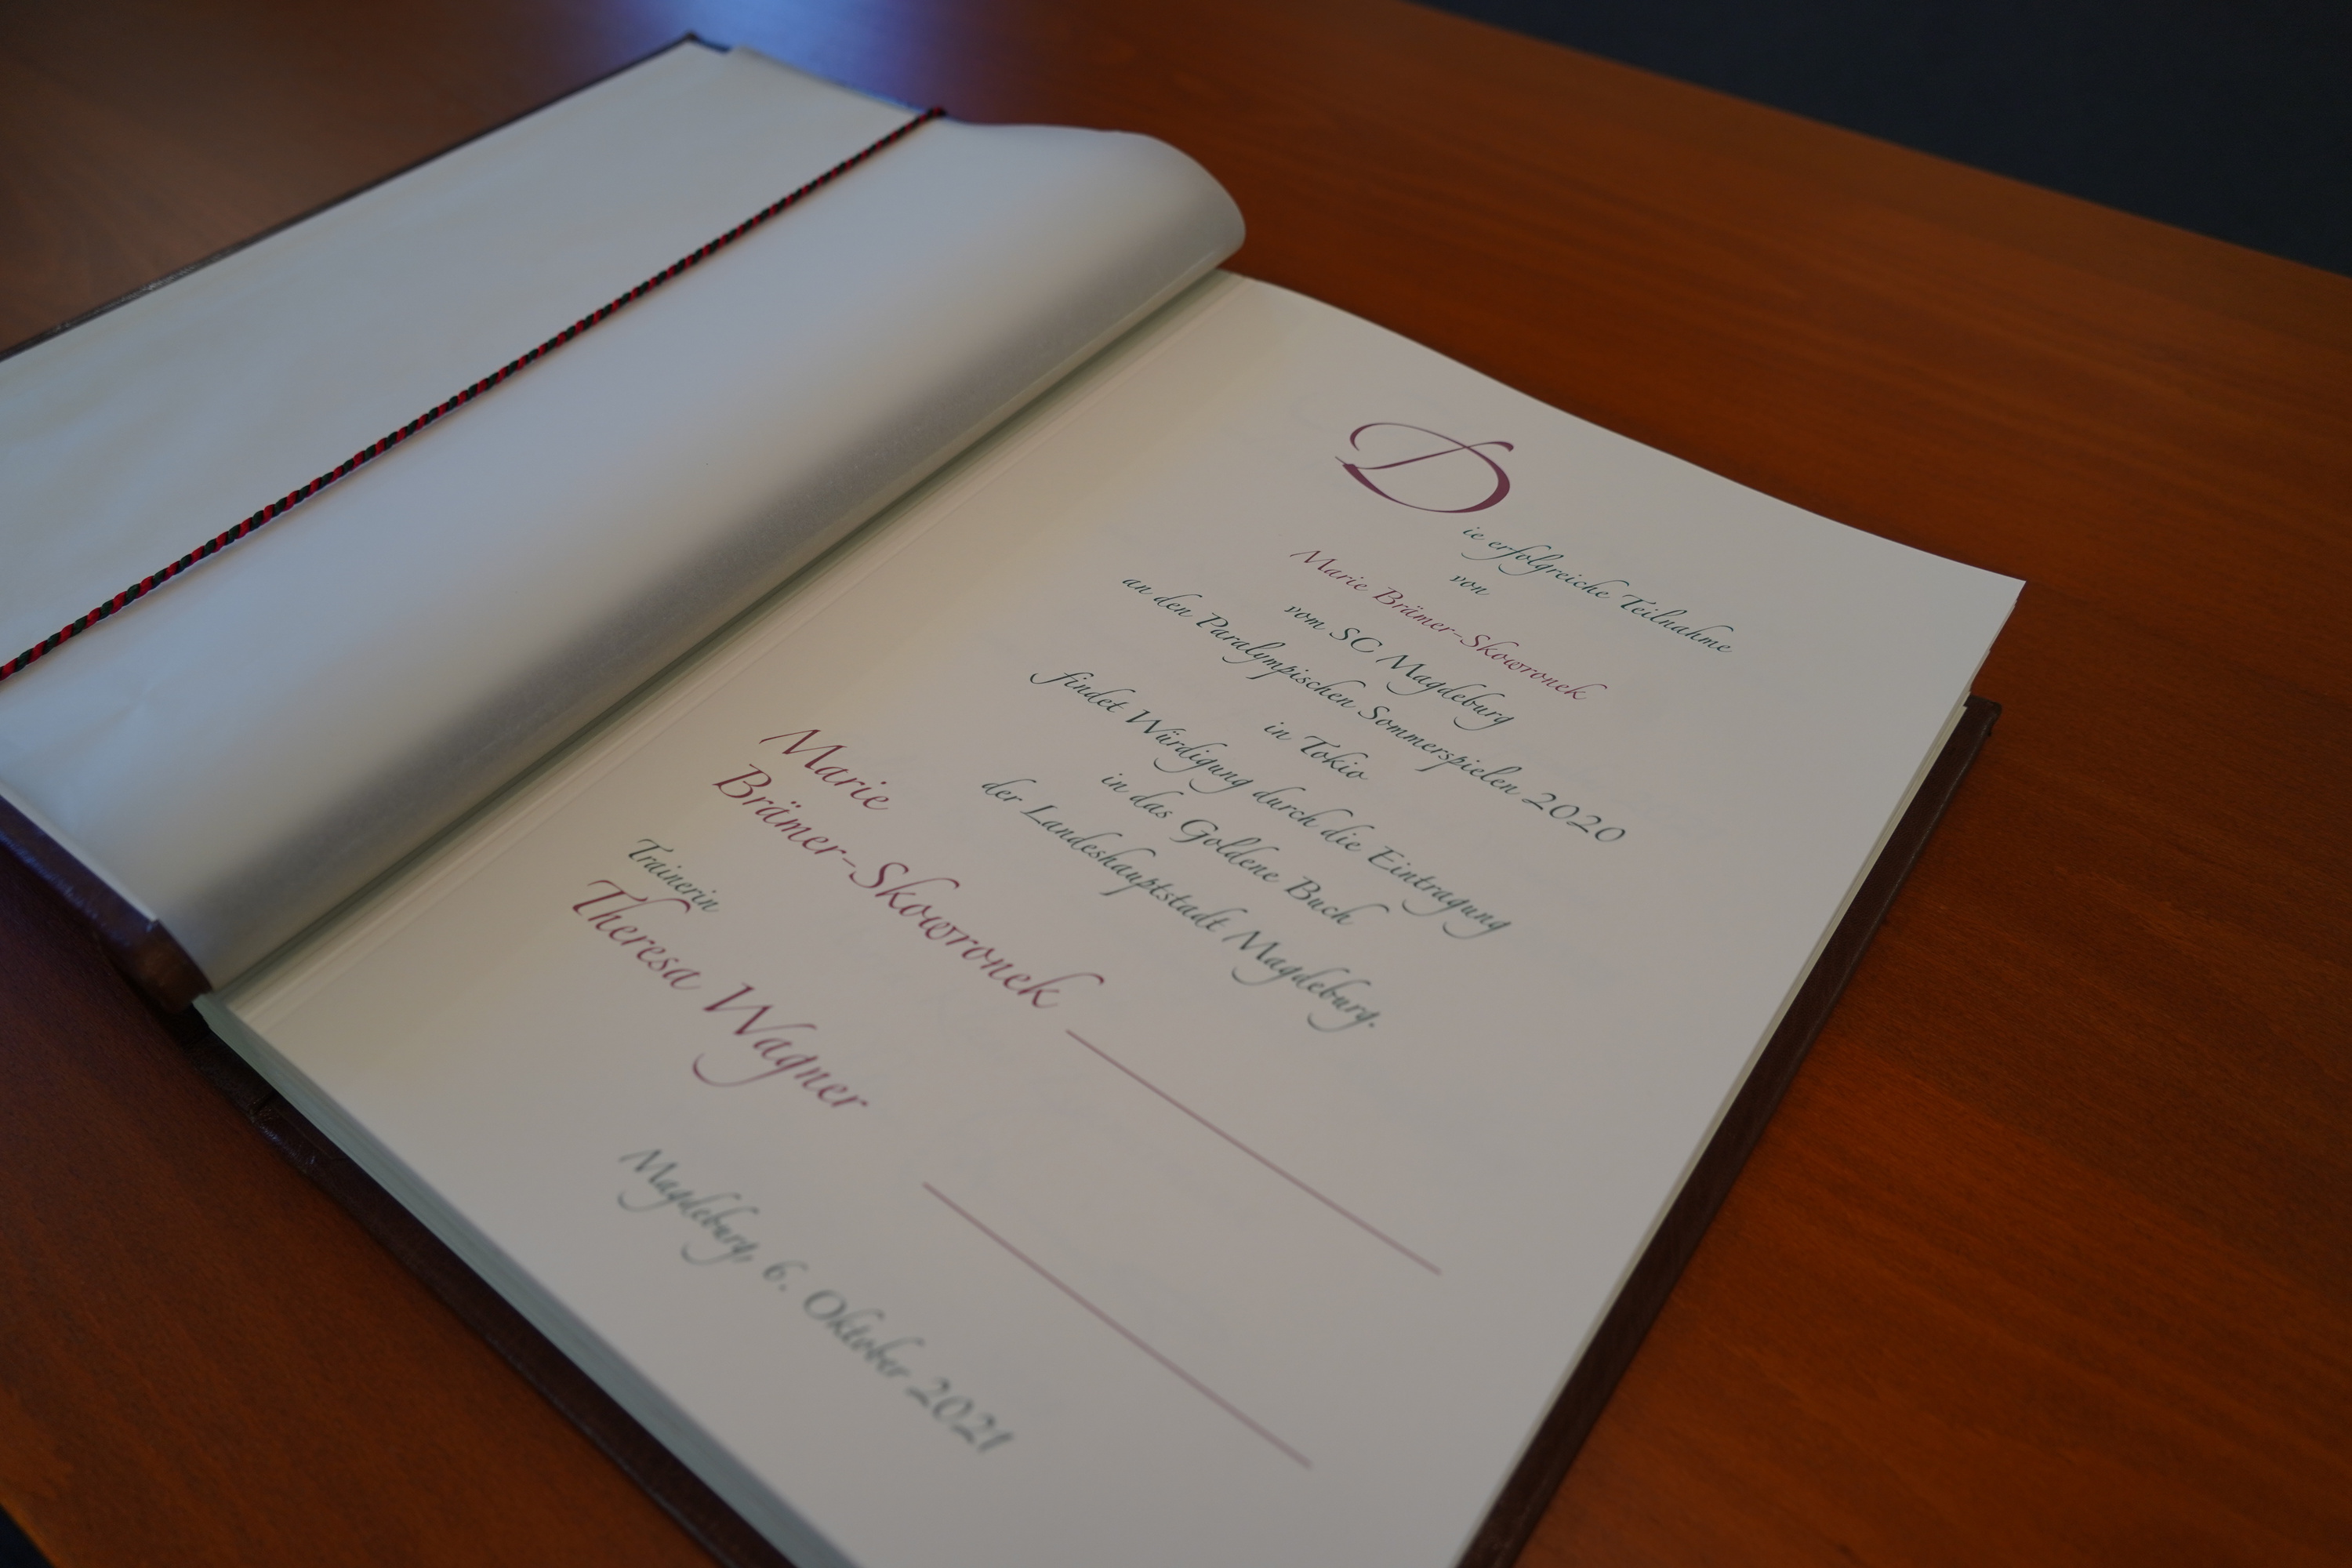 Die erfolgreiche Teilnahme
von
Marie Brämer-Skowronek
vom SC Magdeburg
an den Paralympischen Sommerspielen 2020
in Tokio
findet Würdigung durch die Eintragung
in das Goldene Buch
der Landeshauptstadt Magdeburg.
Marie
Brämer-Skowronek
Trainerin
Theresa Wagner
Magdeburg, 6. Oktober 2021